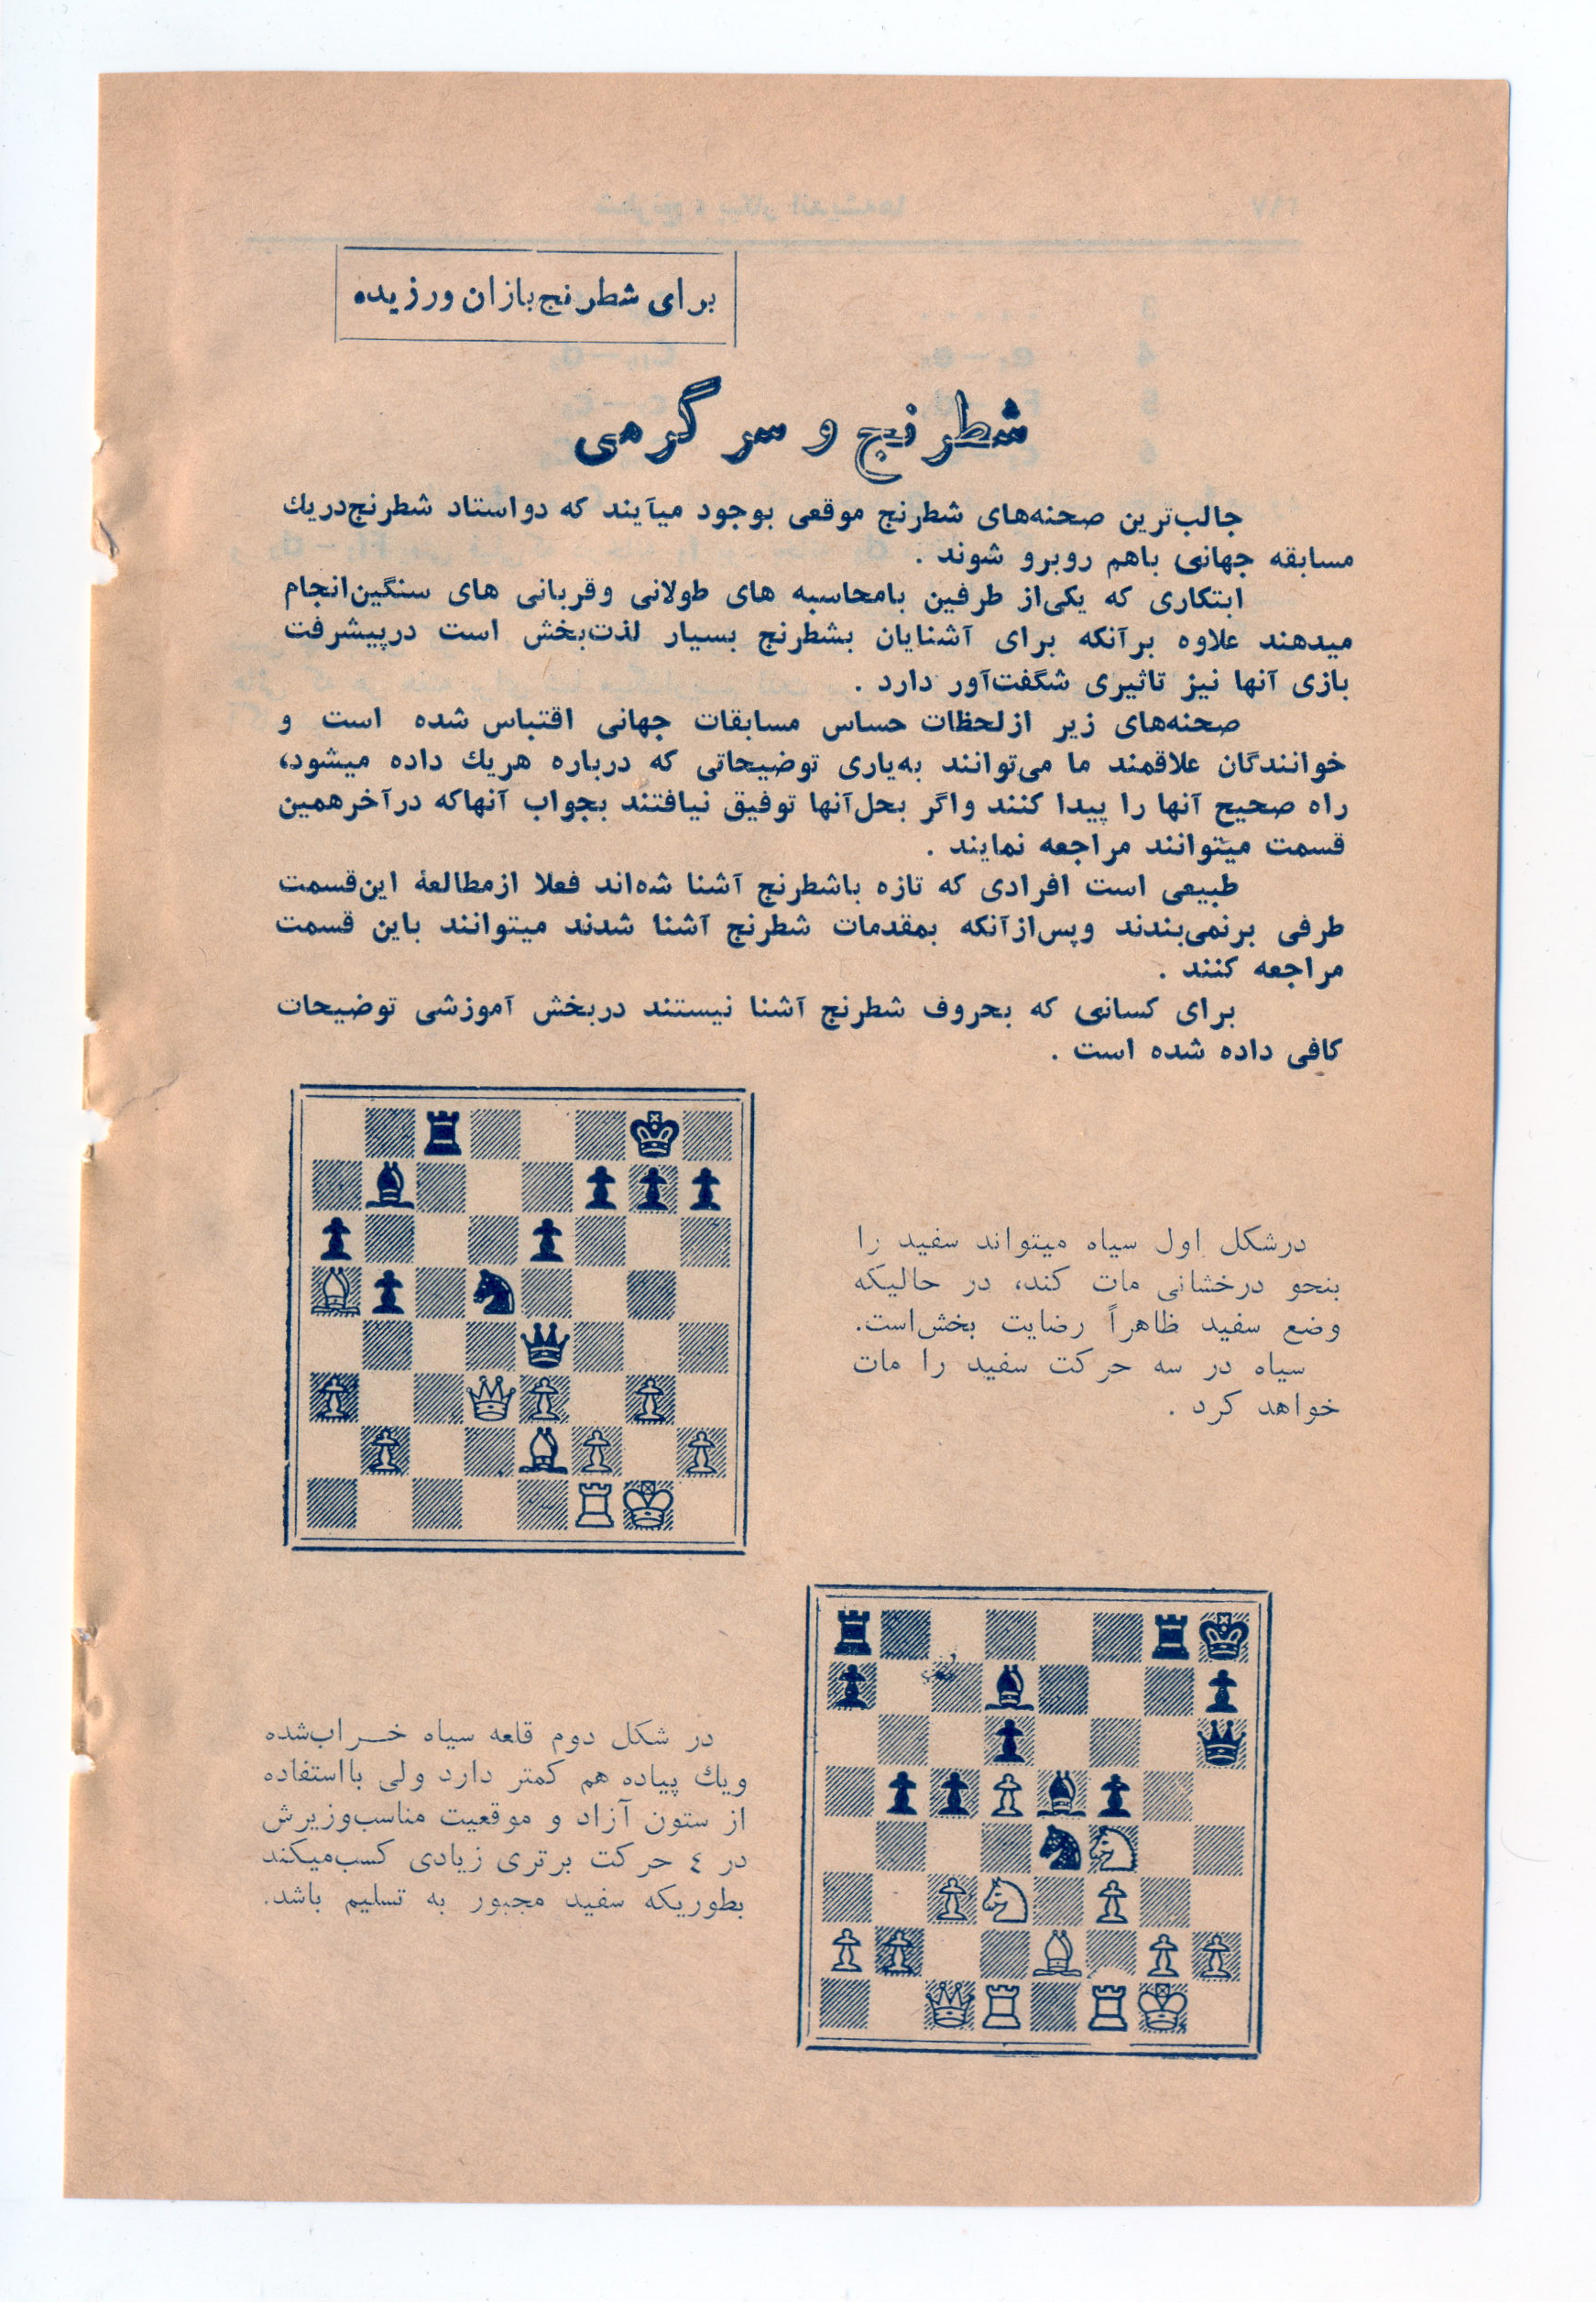 برای شطرنج‌بازان ورزیده
شطرنج و سرگرمی
جالب‌ترین صحنه‌های شطرنج موقعی بوجود میآیند که دو استاد شطرنج‌دریك
مسابقه جهانی باهم روبرو شوند .
ابتکاری که یکی‌از طرفین بامحاسبه های طولانی وقربانی های سنگین‌انجام
میدهند علاوه برآنکه برای آشنایان بشطرنج بسیار لذت‌بخش است درپیشرفت
بازی آنها نیز تاثیری شگفت‌آور دارد .
صحنه‌های زیر ازلحظات حساس مسابقات جهانی اقتباس شده است و
خوانندگان علاقمند ما می‌توانند به‌یاری توضیحاتی که درباره هریك داده میشود،
راه صحیح آنها را پیدا کنند واگر بحل‌آنها توفیق نیافتند بجواب آنهاکه درآخرهمین
قسمت میتوانند مراجعه نمایند .
طبیعی است افرادی که تازه باشطرنج آشنا شده‌اند فعلا ازمطالعهٔ این‌قسمت
طرفی برنمی‌بندند وپس‌ازآنکه بمقدمات شطرنج آشنا شدند میتوانند باین قسمت
مراجعه کنند .
برای کسانی که بحروف شطرنج آشنا نیستند دربخش آموزشی توضیحات
کافی داده شده است .
درشکل اول سیاه میتواند سفید را
بنحو درخشانی مات کند، در حالیکه
وضع سفید ظاهراً رضایت بخش‌است.
سیاه در سه حرکت سفید را مات
خواهد کرد .
در شکل دوم قلعه سیاه خــراب‌شده
ویك پیاده هم کمتر دارد ولی بااستفاده
از ستون آزاد و موقعیت مناسب‌وزیرش
در ٤ حرکت برتری زیادی کسب‌میکند
بطوریکه سفید مجبور به تسلیم باشد.